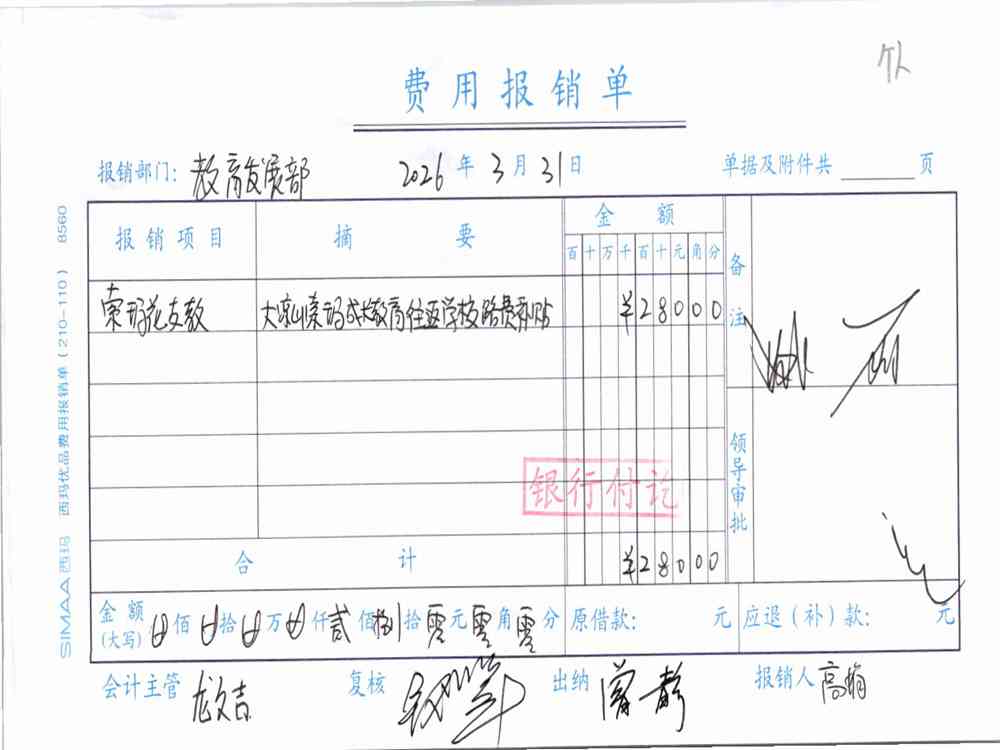 费用报销单
报销部门：教育发展部 2026年3月31日 单据及附件共 页
报销项目 摘要 金额 备注
百十万千百十元角分
索玛花支教 ¥28000
银行付讫
领导审批
合计 ¥28000
金额(大写) 佰 拾 万 仟贰佰捌拾零元零角零分 原借款： 元 应退（补）款： 元
会计主管 尤文吉 复核 出纳 曾静 报销人 高娟
SIMAA 西玛 西玛优品费用报销单（210-110） 8560